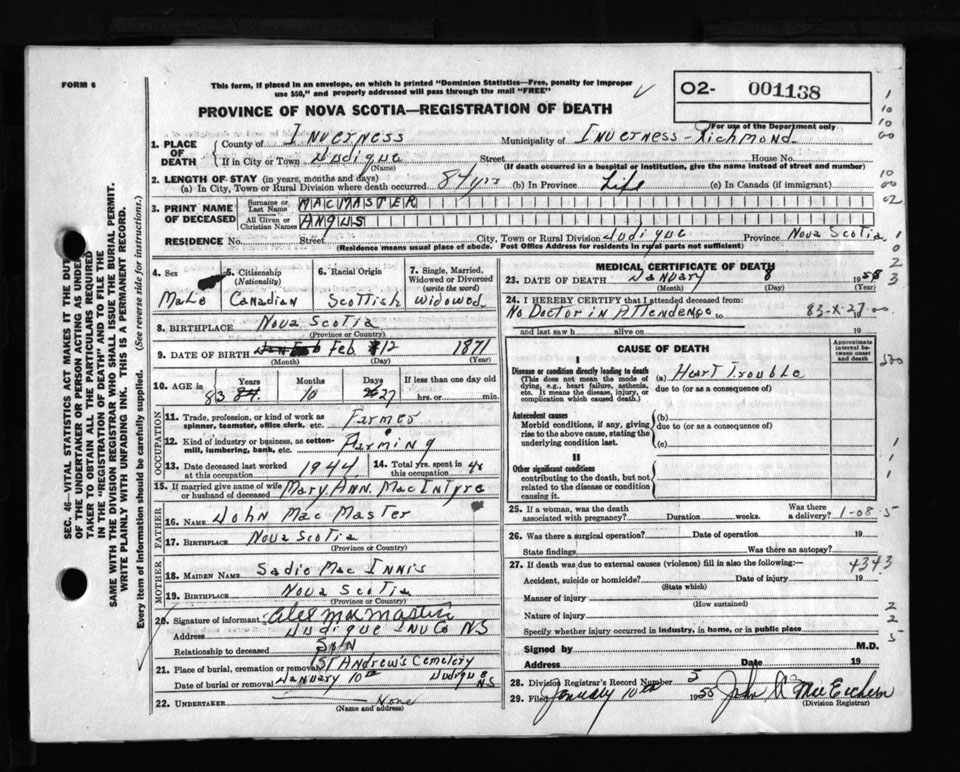 FORM 6
This form, if placed in an envelope, on which is printed "Dominion Statistics—Free, penalty for improper
use $50," and properly addressed will pass through the mail "FREE"
02- 001138
For use of the Department only
PROVINCE OF NOVA SCOTIA—REGISTRATION OF DEATH
1. PLACE OF DEATH
County of Inverness Municipality of Inverness-Richmond
If in City or Town Judique Street House No.
(Name) (If death occurred in a hospital or institution, give the name instead of street and number)
2. LENGTH OF STAY (in years, months and days)
(a) In City, Town or Rural Division where death occurred 84 yrs (b) In Province Life (c) In Canada (if immigrant)
3. PRINT NAME OF DECEASED
Surname or Last Name MACMASTER
All Given or Christian Names ANGUS
RESIDENCE No. Street City, Town or Rural Division Judique Province Nova Scotia
(Residence means usual place of abode. Post Office Address for residents in rural parts not sufficient)
4. Sex Male
5. Citizenship (Nationality) Canadian
6. Racial Origin Scottish
7. Single, Married, Widowed or Divorced (write the word) Widowed
8. BIRTHPLACE Nova Scotia
(Province or Country)
9. DATE OF BIRTH Feb 12 1871
(Month) (Day) (Year)
10. AGE in Years Months Days If less than one day old
83 84 10 27 hrs. or min.
OCCUPATION
11. Trade, profession, or kind of work as spinner, teamster, office clerk, etc. Farmer
12. Kind of industry or business, as cotton-mill, lumbering, bank, etc. Farming
13. Date deceased last worked at this occupation 1944
14. Total yrs. spent in this occupation 48
15. If married give name of wife or husband of deceased Mary Ann MacIntyre
FATHER
16. NAME John MacMaster
17. BIRTHPLACE Nova Scotia
(Province or Country)
MOTHER
18. MAIDEN NAME Sadie MacInnis
19. BIRTHPLACE Nova Scotia
(Province or Country)
20. Signature of informant Alex MacMaster
Address Judique Inv Co NS
Relationship to deceased Son
21. Place of burial, cremation or removal St Andrew's Cemetery
Date of burial or removal January 10th Judique NS
22. UNDERTAKER None
(Name and Address)
MEDICAL CERTIFICATE OF DEATH
23. DATE OF DEATH January 8 1955
(Month) (Day) (Year)
24. I HEREBY CERTIFY that I attended deceased from:
No Doctor in Attendence to 83-X-27-00
and last saw h alive on 19
CAUSE OF DEATH
Approximate interval between onset and death
I
Disease or condition directly leading to death
(This does not mean the mode of dying, e.g., heart failure, asthenia, etc. It means the disease, injury, or complication which caused death.)
(a) Heart Trouble
due to (or as a consequence of)
Antecedent causes
Morbid conditions, if any, giving rise to the above cause, stating the underlying condition last.
(b)
due to (or as a consequence of)
(c)
II
Other significant conditions
contributing to the death, but not related to the disease or condition causing it.
25. If a woman, was the death associated with pregnancy? Duration weeks. Was there a delivery? 1-08-5
26. Was there a surgical operation? Date of operation 19
State findings Was there an autopsy?
27. If death was due to external causes (violence) fill in also the following:— 4343
Accident, suicide or homicide? Date of injury 19
(State which)
Manner of injury
(How sustained)
Nature of injury
Specify whether injury occurred in industry, in home, or in public place
Signed by M.D.
Address Date 19
28. Division Registrar's Record Number 5
29. Filed January 10th 1955 John A MacEachern
(Division Registrar)
SEC. 46—VITAL STATISTICS ACT MAKES IT THE DUTY
OF THE UNDERTAKER OR PERSON ACTING AS UNDER-
TAKER TO OBTAIN ALL THE PARTICULARS REQUIRED
IN THE "REGISTRATION OF DEATH" AND TO FILE THE
SAME WITH THE DIVISION REGISTRAR WHO SHALL ISSUE THE BURIAL PERMIT.
WRITE PLAINLY WITH UNFADING INK. THIS IS A PERMANENT RECORD.
Every item of information should be carefully supplied. (See reverse side for instructions.)